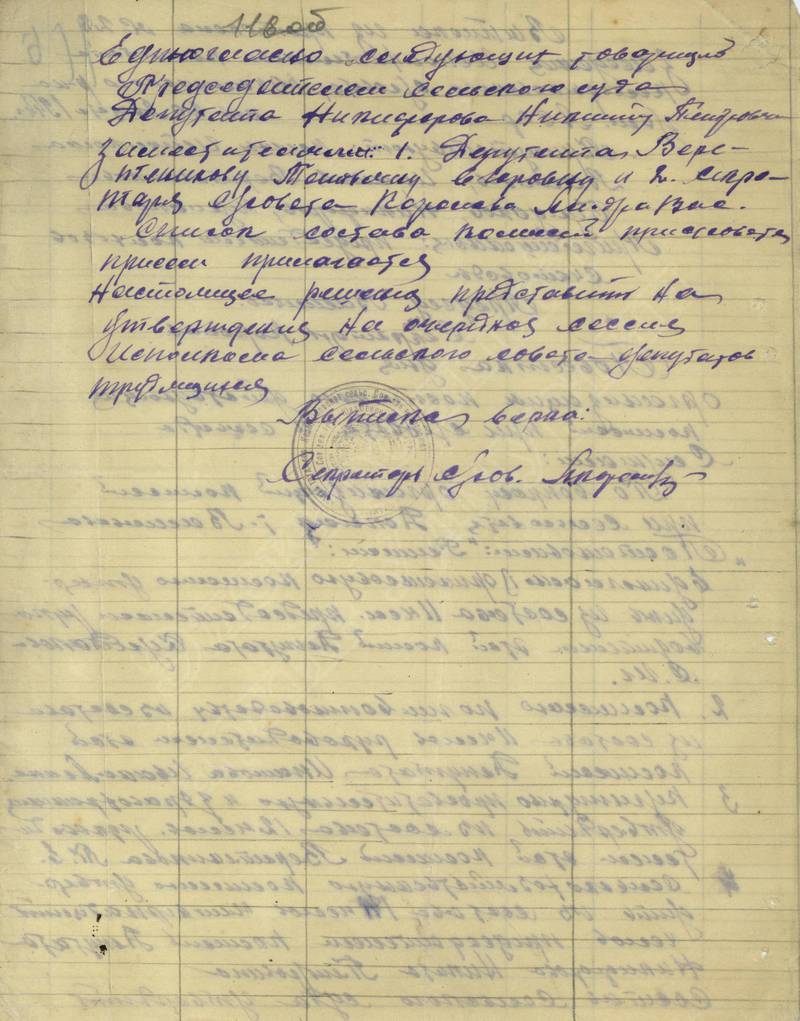 118 об
Единогласно следующих товарищей
Председателем сельского суда
Депутата Никифорова Никиту Петровича
заместителями: 1. Депутата Вере-
тенникову Татьяну Егоровну и 2. секре-
таря с/совета Королева Александра Вас.
Список состава комиссий присельсовета
присем прилагается
Настоящее решения представить на
утверждения на очередная сессия
Исполкома сельского совета депутатов
трудящихся
Выписка верна:
Секретарь с/сов.